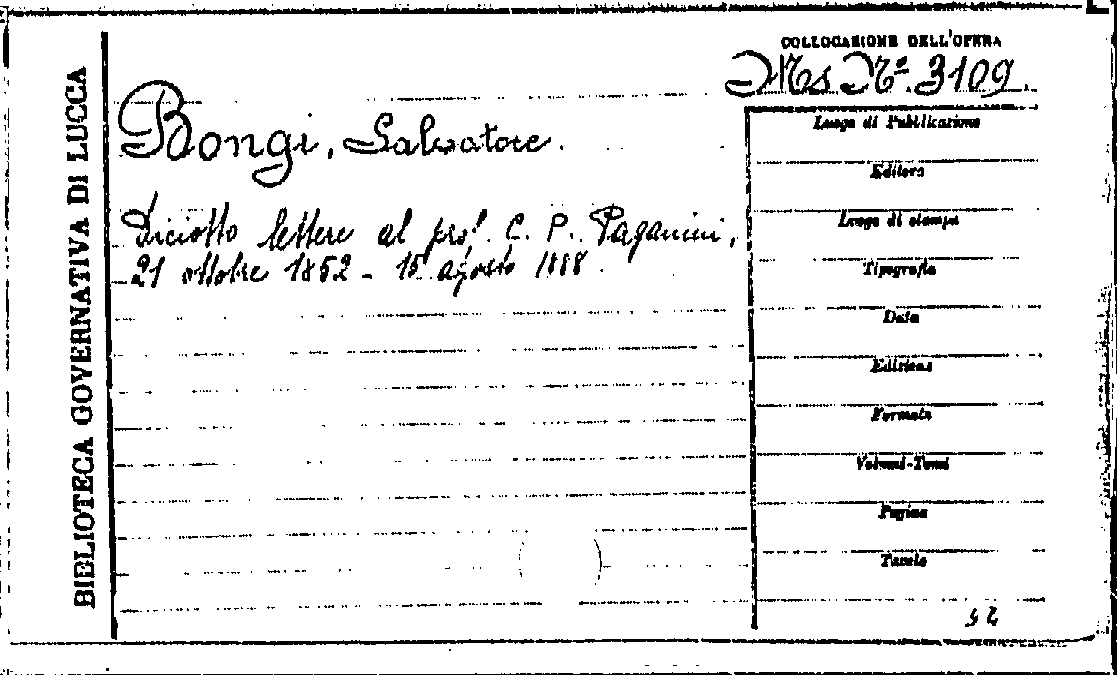 BIBLIOTECA GOVERNATIVA DI LUCCA
COLLOCAZIONE DELL'OPERA
Ms. N.º 3109.
Bongi, Salvatore.
Diciotto lettere al prof. C. P. Paganini,
21 ottobre 1852 - 15 agosto 1888.
Luogo di Pubblicazione
Editore
Luogo di stampa
Tipografia
Data
Edizione
Formato
Volumi-Tomi
Pagine
Tavole